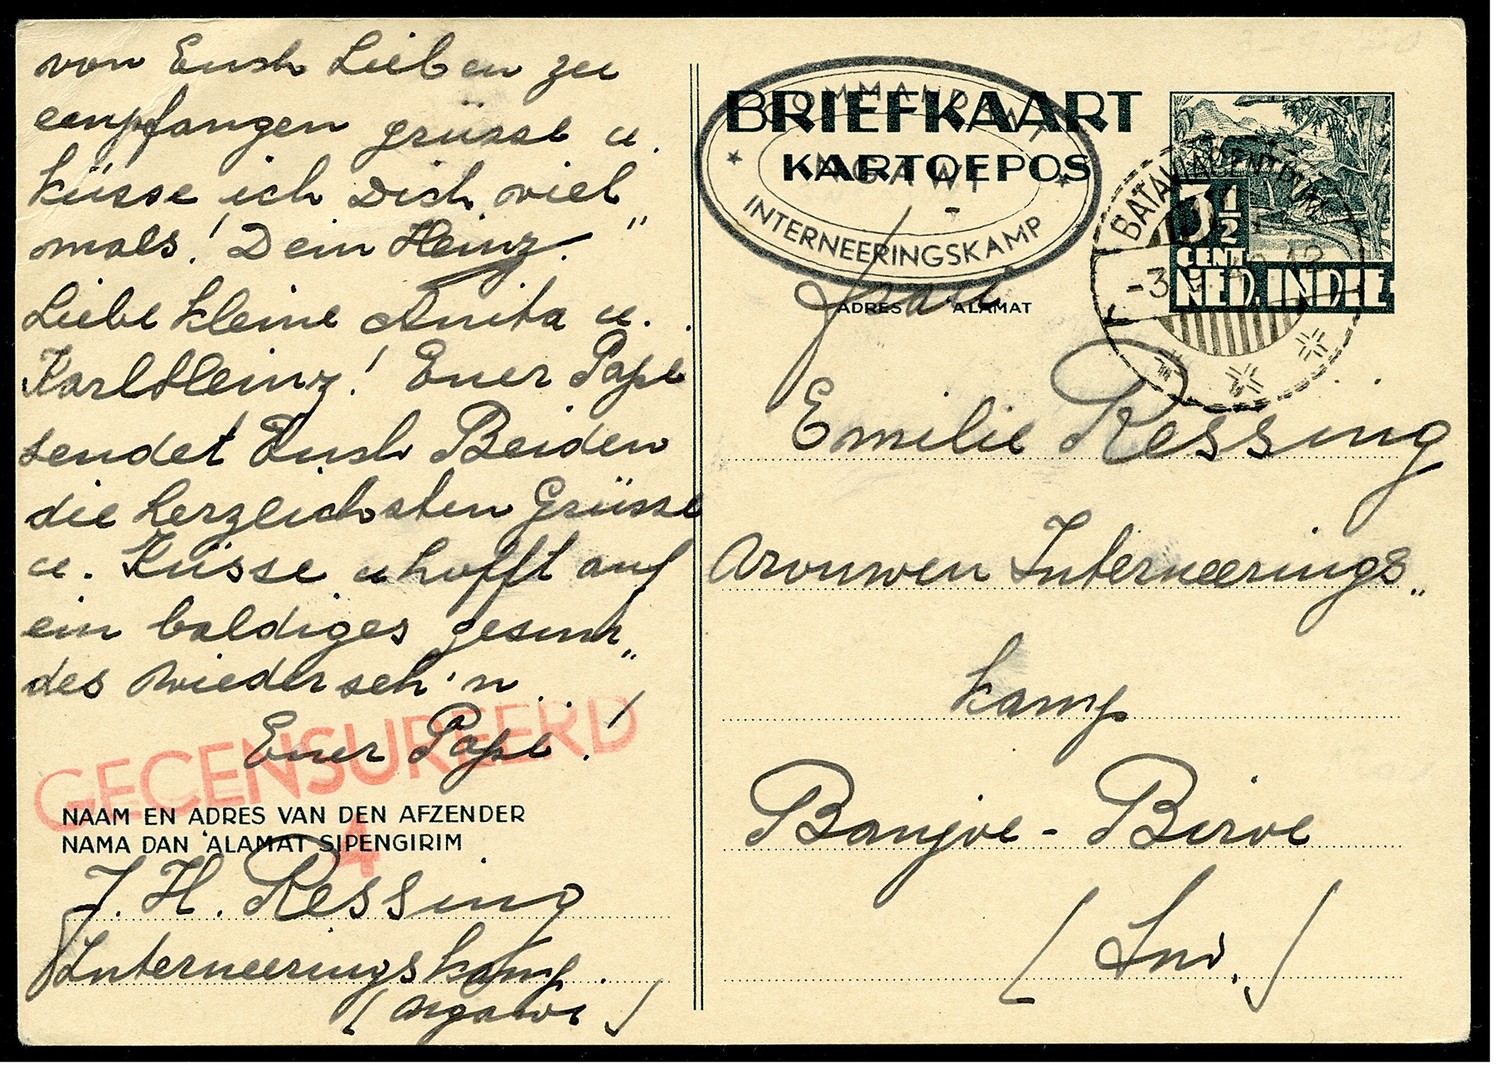 von Euch Lieben zu
empfangen grüsse u.
küsse ich Dich viel
mals! Dein Heinz."
Liebe kleine Anita u.
KarlHeinz! Euer Papi
sendet Euch Beiden
die herzlichsten Grüsse
u. Küsse u hofft auf
ein baldiges gesun„
des wiederseh'n...!
Euer Papi.
GECENSUREERD
4
NAAM EN ADRES VAN DEN AFZENDER
NAMA DAN 'ALAMAT SIPENGIRIM
J. H. Ressing
Interneeringskamp.
(Ngawi)
BRIEFKAART
KARTOEPOS
COMMANDANT
NGAWI
INTERNEERINGSKAMP
ADRES ALAMAT
BATAVIA-CENTRUM
-3.9.40.12
3½
CENT
NED. INDIE
Frau
Emilie Ressing
Vrouwen Interneerings„
kamp
Banjoe-Biroe
(Java)